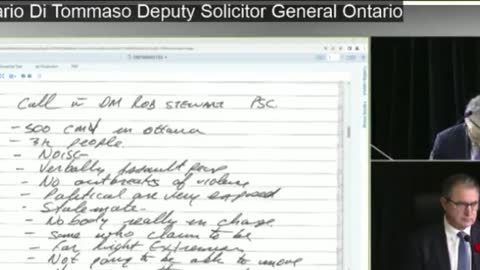 ario Di Tommaso Deputy Solicitor General Ontario
Call w DM ROB STEWART PSC
- 500 CMV in Ottawa
- 3K people
- NOISE
- Verbally assault
- No outbreaks of violence
- Political are very exposed
- Stalemate
- Nobody really in charge
- Some who claim to be
- Far Right Extremism
- Not going to be able to move